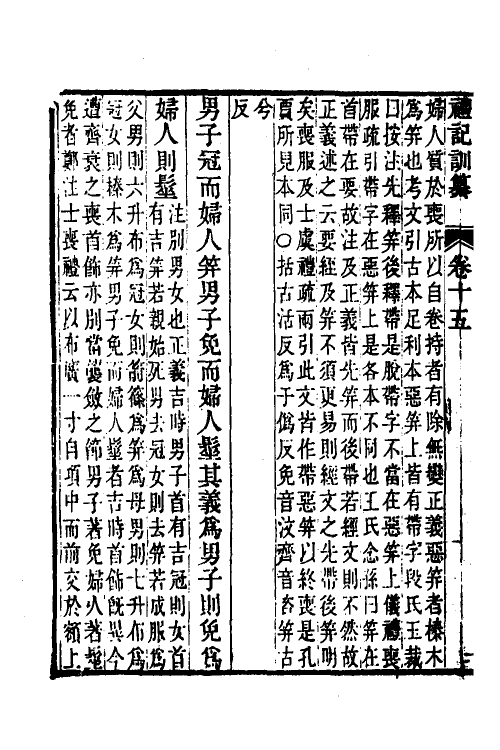 禮記訓纂 卷十五
婦人質於喪所以自卷持者有除無變正義惡笄者榛木
爲笄也考文引古本足利本惡笄上皆有帶字段氏玉裁
曰按注先釋笄後釋帶是股帶字不當在惡笄上儀禮喪
服疏引帶字在惡笄上是各本不同也王氏念孫曰笄在
首帶在要故注及正義皆先笄而後帶若經文則不然故
正義述之云要絰及笄不須更易則經文之先帶後笄明
矣喪服及士虞禮疏兩引此文皆作帶惡笄以終喪是孔
賈所見本同○括古活反爲于僞反免音汶齊音咨笄古
兮
反
男子冠而婦人笄男子免而婦人髽其義爲男子則免爲
婦人則髽
注別男女也正義吉時男子首有吉冠則女首
有吉笄若親始死男去冠女則去笄若成服爲
父男則六升布爲冠女則箭篠爲笄爲母男則七升布爲
冠女則榛木爲笄男子免而婦人髽者古時首飾旣異今
遭齊衰之喪首飾亦別當襲斂之節男子著免婦人著髽
免者鄭注士喪禮云以布廣一寸自項中而前交於額上